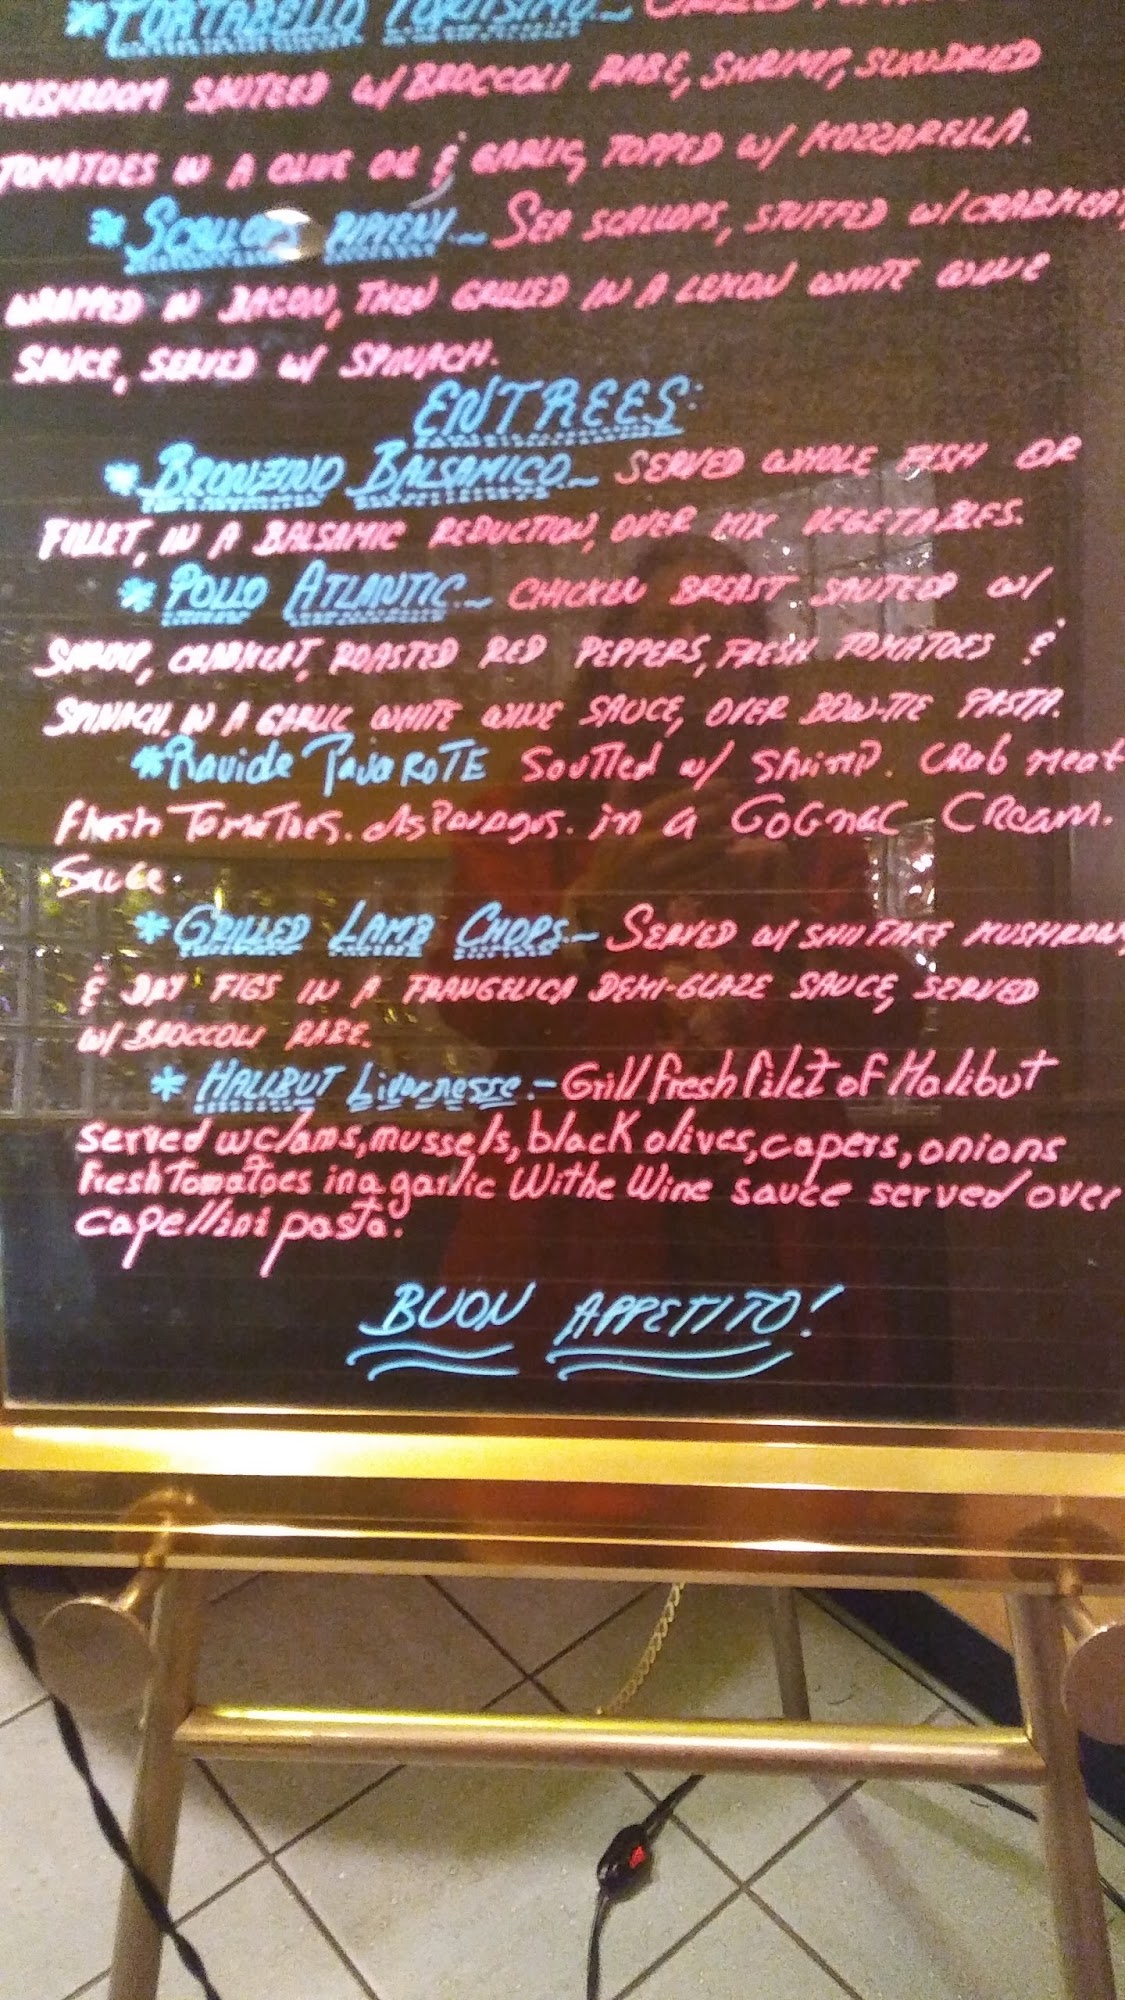 *PORTABELLO FORTISIMO~ GRILLED
MUSHROOM SAUTEED W/BROCCOLI RABE, SHRIMP, SUNDRIED
TOMATOES IN A OLIVE OIL & GARLIC, TOPPED W/ MOZZARELLA.
* SCALLOPS RIPIENI~ SEA SCALLOPS, STUFFED W/CRABMEAT,
WRAPPED IN BACON, THEN GRILLED IN A LEMON WHITE WINE
SAUCE, SERVED W/ SPINACH.
ENTREES:
* BRONZINO BALSAMICO~ SERVED WHOLE FISH OR
FILLET, IN A BALSAMIC REDUCTION, OVER MIX VEGETABLES.
* POLLO ATLANTIC~ CHICKEN BREAST SAUTEED W/
SHRIMP, CRABMEAT, ROASTED RED PEPPERS, FRESH TOMATOES &
SPINACH, IN A GARLIC WHITE WINE SAUCE, OVER BOW-TIE PASTA.
*Ravide PavaROTE Soutled w/ Shrimp. CRab meat
fresh Tomatoes. AsParagus. in a COGnac CReam.
Sauce
* GRILLED LAMB CHOPS~ SERVED W/ SHIITAKE MUSHROOM
& DRY FIGS IN A FRANGELICA DEMI-GLAZE SAUCE, SERVED
W/ BROCCOLI RABE.
* HALIBUT Livornesse.- Grill fresh filet of Halibut
served w clams, mussels, black olives, capers, onions
fresh Tomatoes in a garlic Withe Wine sauce served over
capellini pasta.
BUON APPETITO!